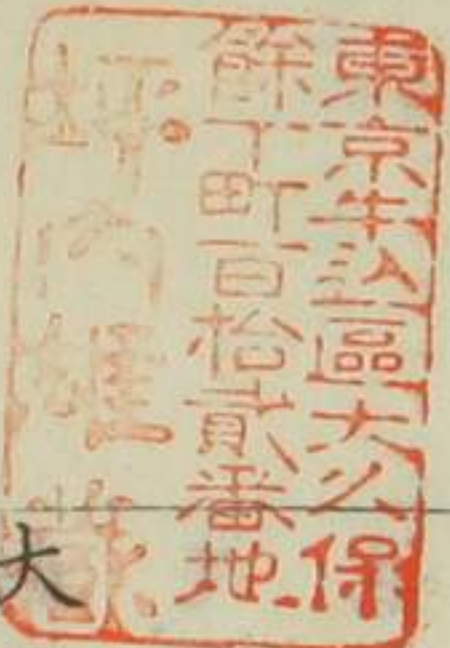 東京牛込區大久保
餘丁町百拾貳番地
坪内雄蔵
大